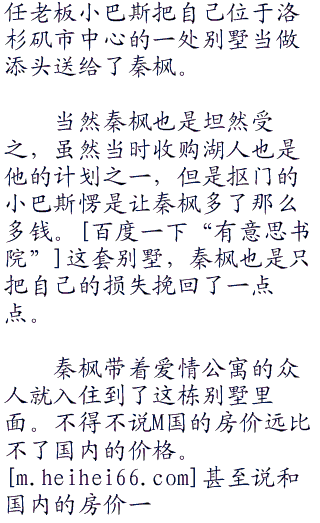 任老板小巴斯把自己位于洛
杉矶市中心的一处别墅当做
添头送给了秦枫。
当然秦枫也是坦然受
之，虽然当时收购湖人也是
他的计划之一，但是抠门的
小巴斯愣是让秦枫多了那么
多钱。[百度一下“有意思书
院”]这套别墅，秦枫也是只
把自己的损失挽回了一点
点。
秦枫带着爱情公寓的众
人就入住到了这栋别墅里
面。不得不说M国的房价远比
不了国内的价格。
[m.heihei66.com]甚至说和
国内的房价一